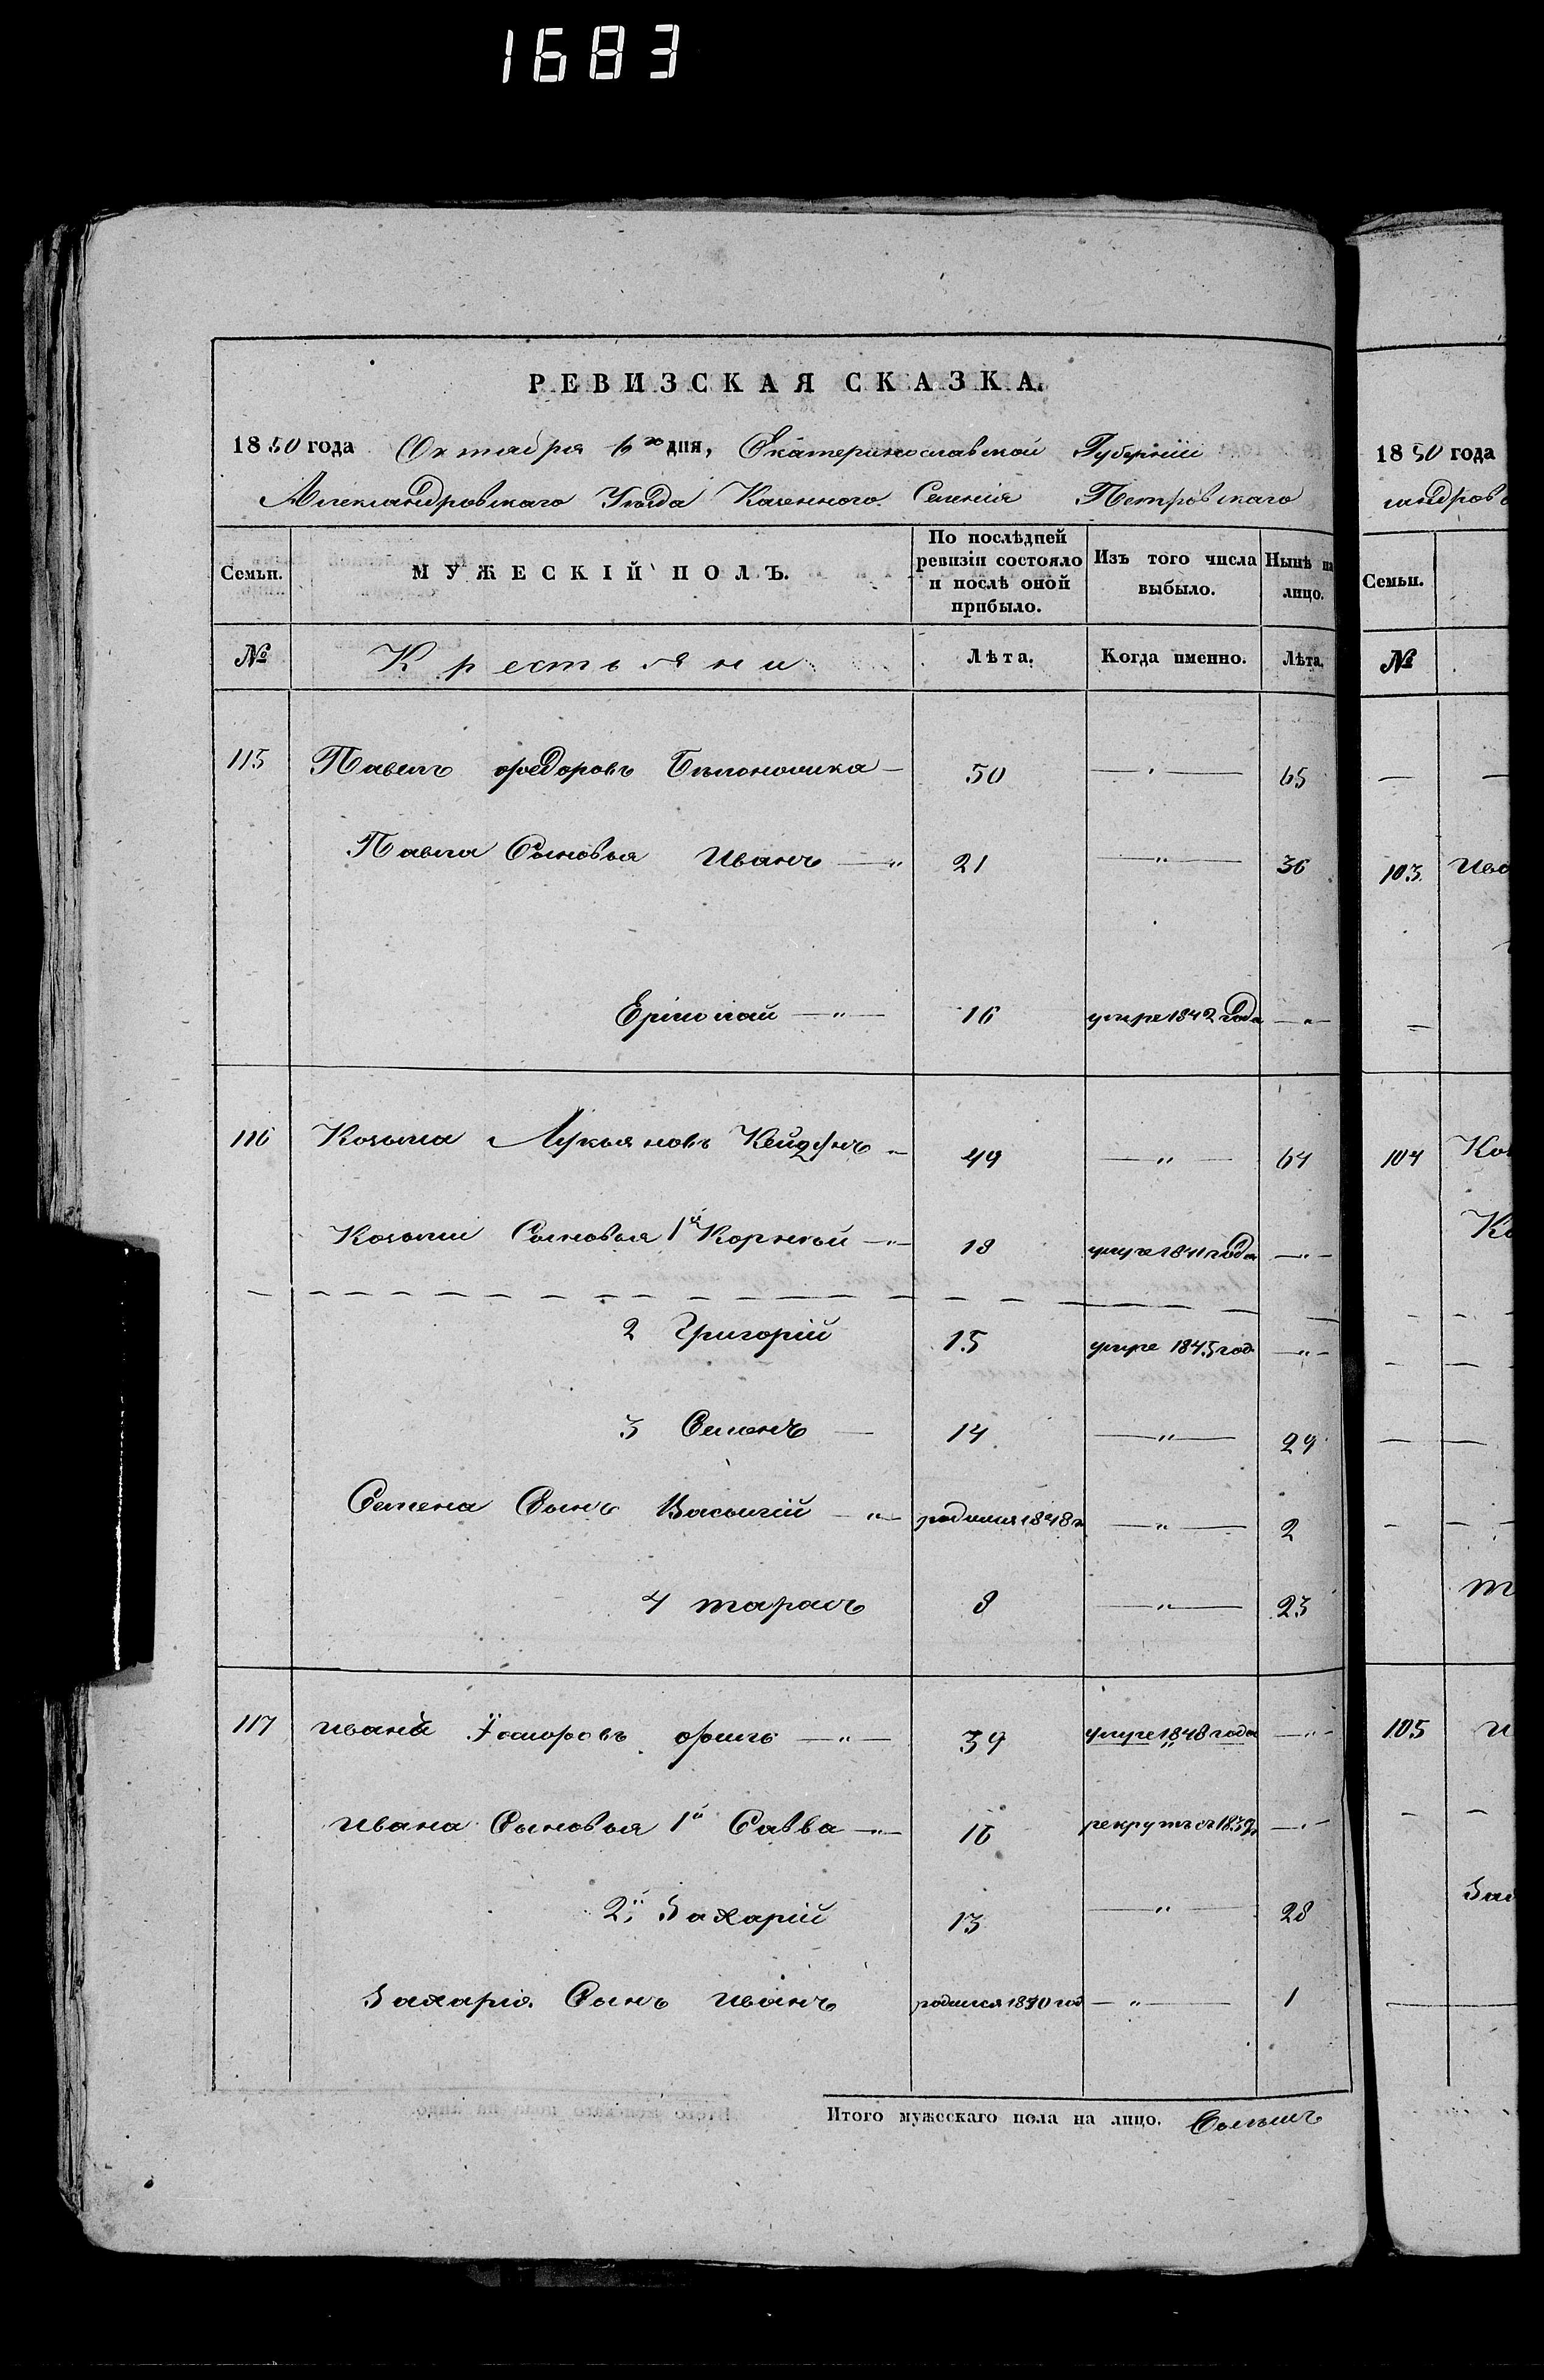 1683
РЕВИЗСКАЯ СКАЗКА.
1850 года Октября 6го дня, Екатеринославской Губерніи
Александровскаго Уѣзда Казенного Селенія Петровскаго
Семьи.
МУЖЕСКІЙ ПОЛЪ.
По послѣдней ревизіи состояло и послѣ оной прибыло.
Изъ того числа выбыло.
Нынѣ на лицо.
№ Крестьяни Лѣта. Когда именно. Лѣта.
115 Павелъ Федоровъ — 50 — 65
Павла Сыновья Иванъ — 21 — 36
Ермолай — 16 умре 1842 года —
116 Козьма Лукьяновъ — 49 — 64
Козьми Сыновья 1й Корнѣй — 18 года —
2 Григорій 15 умре 1845 год —
3 Семенъ — 14 — 29
Семена Сынъ Василій — родился 1848 — 2
4 тарасъ 8 — 23
117 иванъ — 39 умре 1848 года —
ивана Сыновья 1й Савва — 16 рекрутъ —
2й Захарій 13 — 28
Захарія Сынъ иванъ родился 1850 год — 1
Итого мужескаго пола на лицо.
1850 года
Семьи.
№
103
104
105